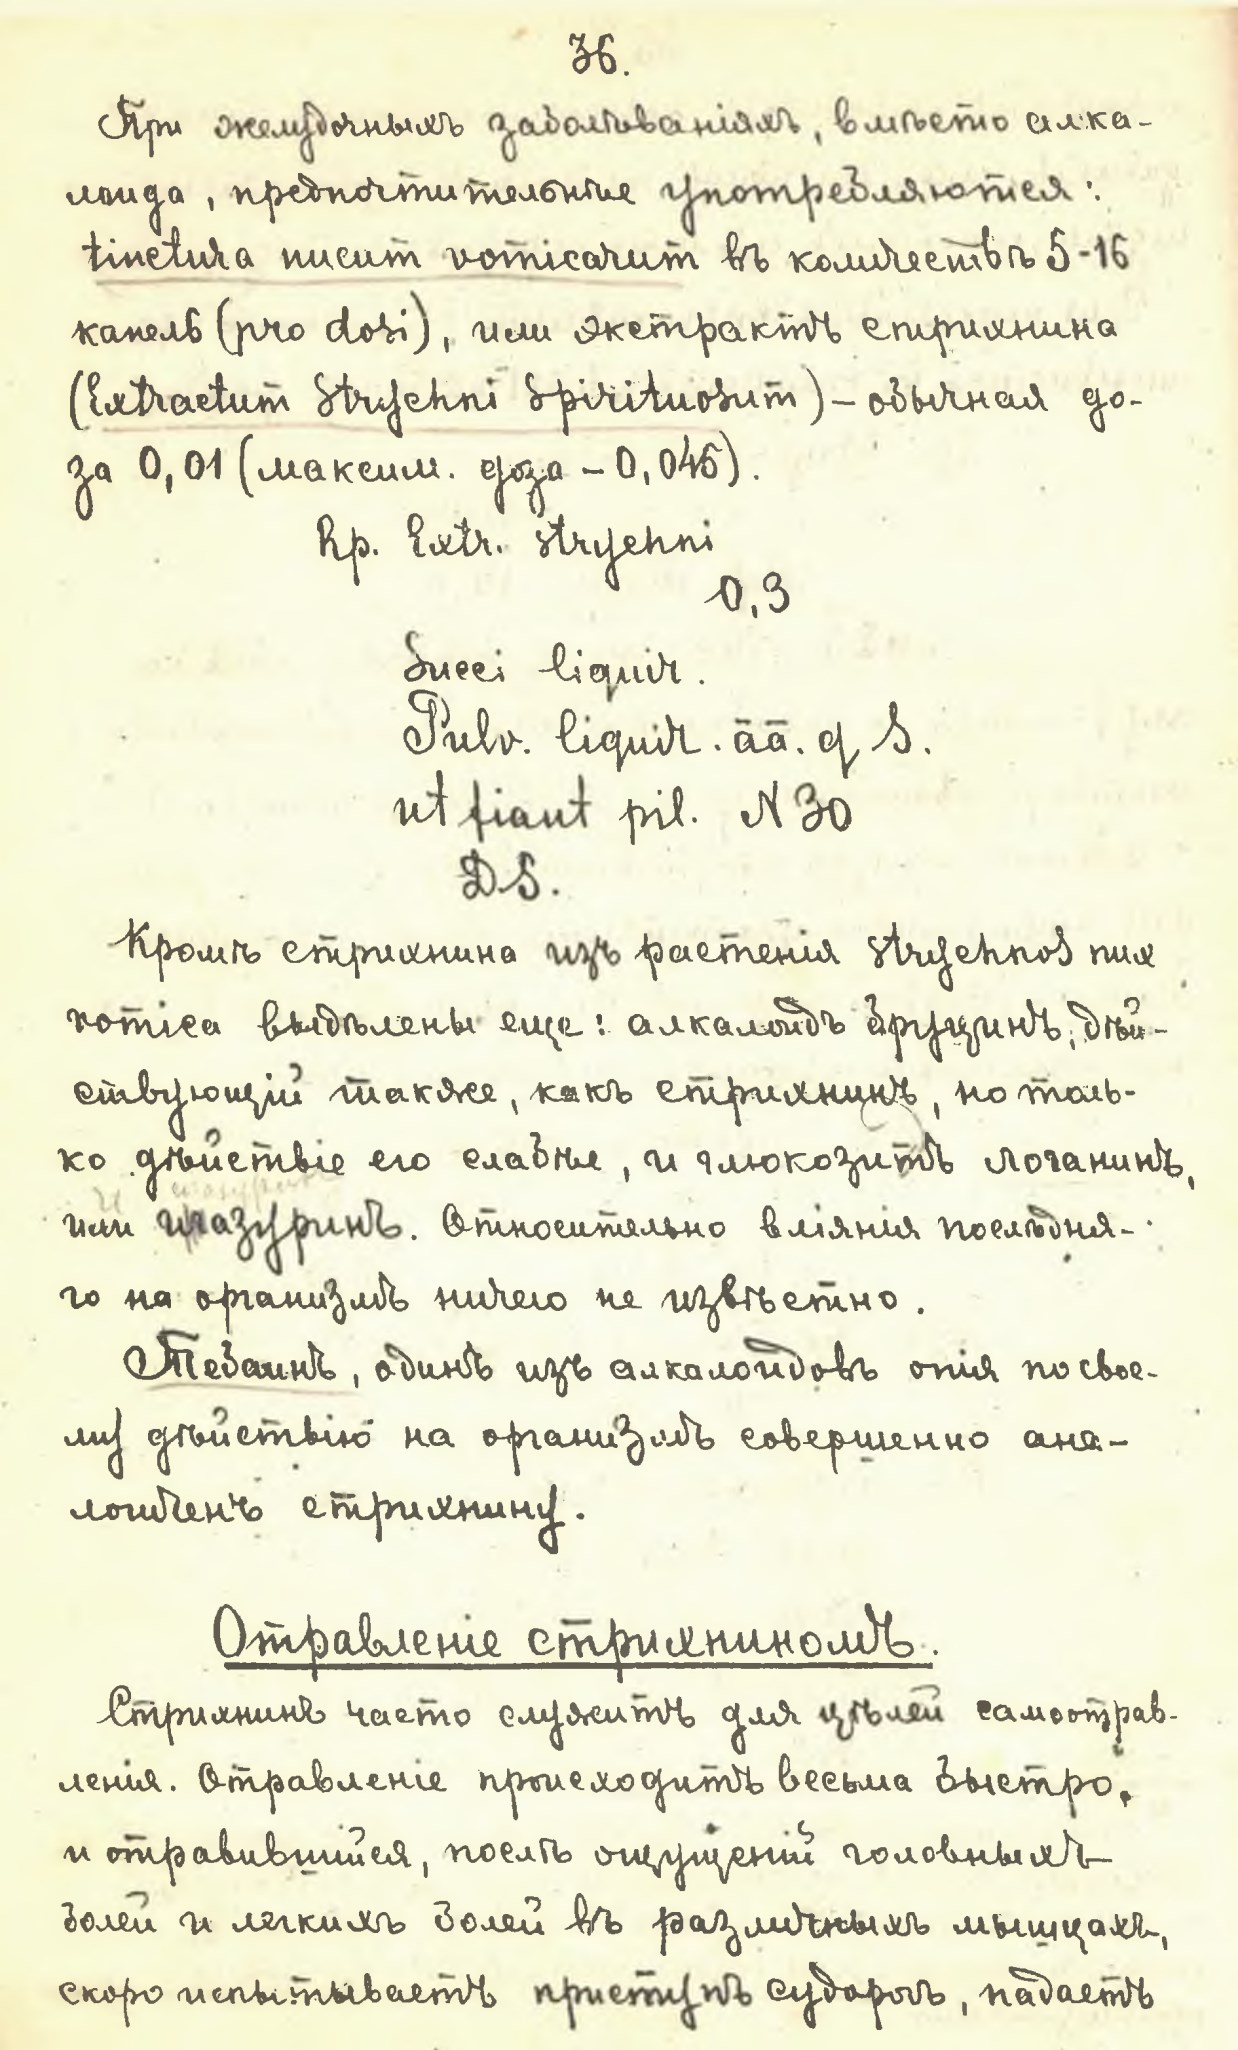 36.
При желудочныхъ заболѣваніяхъ, вмѣсто алка-
лоида, предпочтительнѣе употребляются:
tinctura nucum vomicarum въ количествѣ 5-16
капель (pro dosi), или экстрактъ стрихнина
(Extractum Strychni Spirituosum) – обычная до-
за 0,01 (максим. доза – 0,045).
Rp. Extr. Strychni
0,3
Succi liquir.
Pulv. liquir. āā. q S.
ut fiant pil. N 30
D.S.
Кромѣ стрихнина изъ растенія Strychnos nux
vomica выдѣлены еще: алкалоидъ бруцинъ, дѣй-
ствующій также, какъ стрихнинъ, но толь-
ко дѣйствіе его слабѣе, и глюкозитъ логанинъ,
или игазуринъ. Относительно вліянія послѣдня-
го на организмъ ничего не извѣстно.
Тебаинъ, одинъ изъ алкалоидовъ опія по свое-
му дѣйствію на организмъ совершенно ана-
логиченъ стрихнину.
Отравленіе стрихниномъ.
Стрихнинъ часто служитъ для цѣлей самоотрав-
ленія. Отравленіе происходитъ весьма быстро,
и отравившійся, послѣ ощущеній головныхъ
болей и легкихъ болей въ различныхъ мышцахъ,
скоро испытываетъ приступъ судорогъ, падаетъ